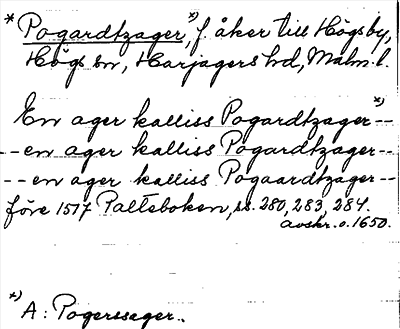 * Pogardtzager, *) f. åker till Högsby,
Högs sn, Harjagers hd, Malm. l.
En ager kalliss Pogardtzager *) --
-- en ager kalliss Pogardtzager --
-- en ager kalliss Pogaardtzager --
före 1517 Palteboken, ss. 280, 283, 284.
avskr. o. 1650.
*) A: Pogerssager.